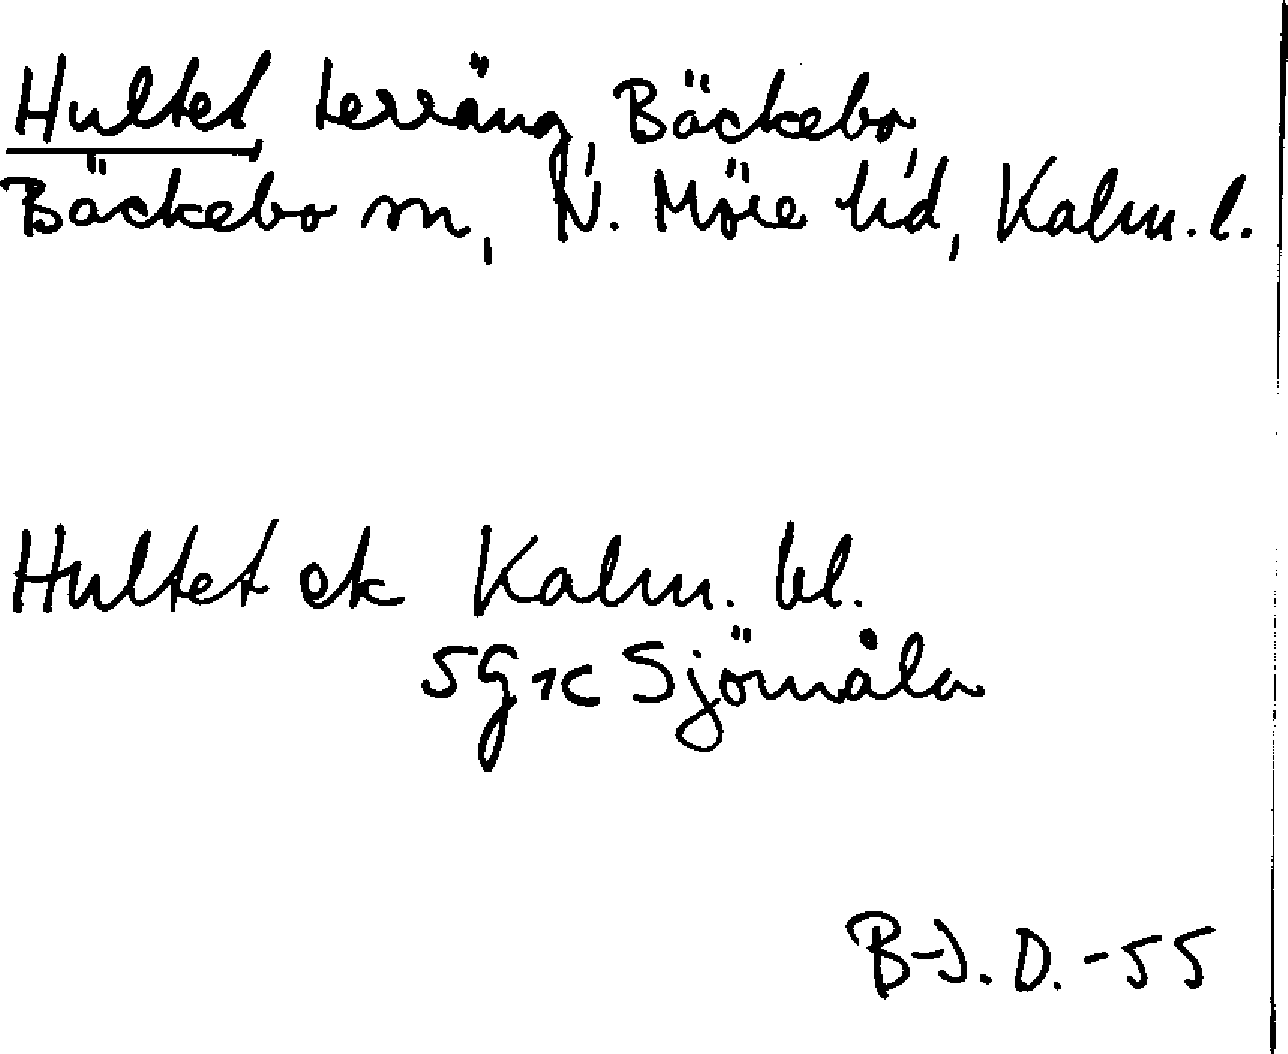 Hultet, terräng, Bäckebo,
Bäckebo sn, N. Möre hd, Kalm. l.
Hultet ek Kalm. bl.
5G1c Sjömåla
B-J. D. -55